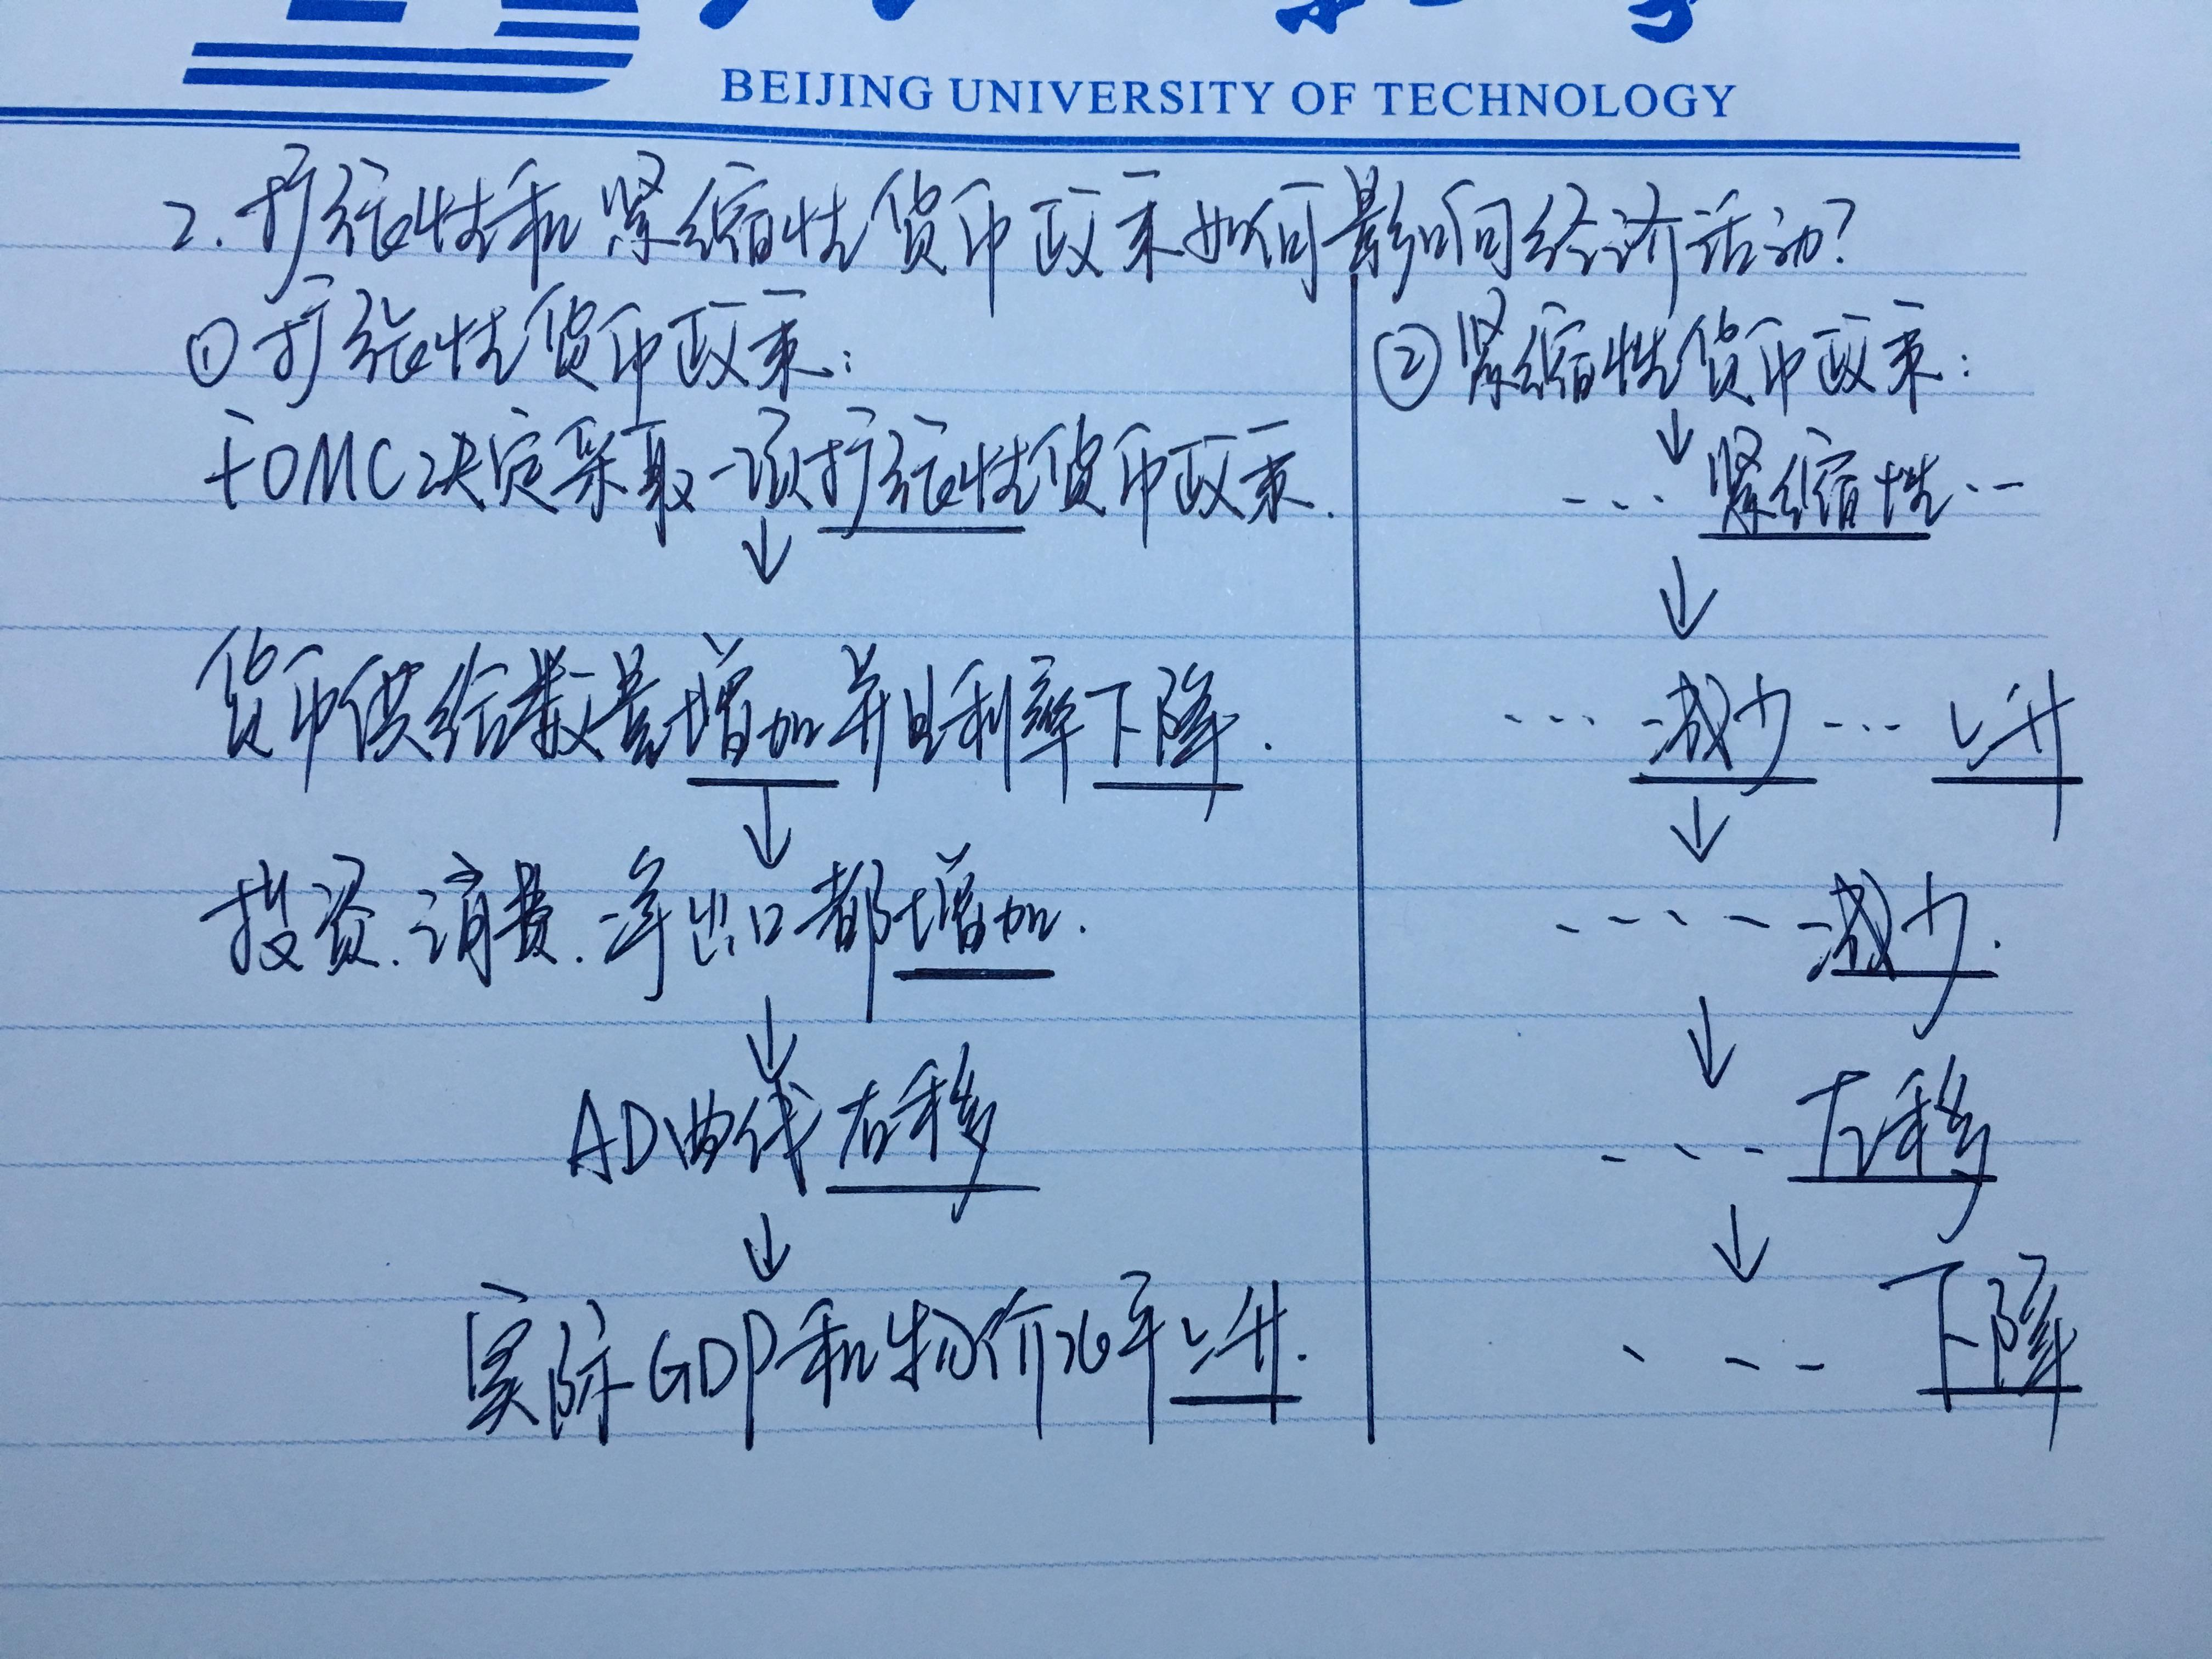 BEIJING UNIVERSITY OF TECHNOLOGY
2.扩张性和紧缩性货币政策如何影响经济活动?
①扩张性货币政策:
FOMC决定采取一项扩张性货币政策.
↓
货币供给数量增加并且利率下降.
↓
投资.消费.净出口都增加.
↓
AD曲线右移
↓
实际GDP和物价水平上升.
②紧缩性货币政策:
↓
...紧缩性..
↓
...减少...上升
↓
....减少.
↓
...左移
↓
...下降